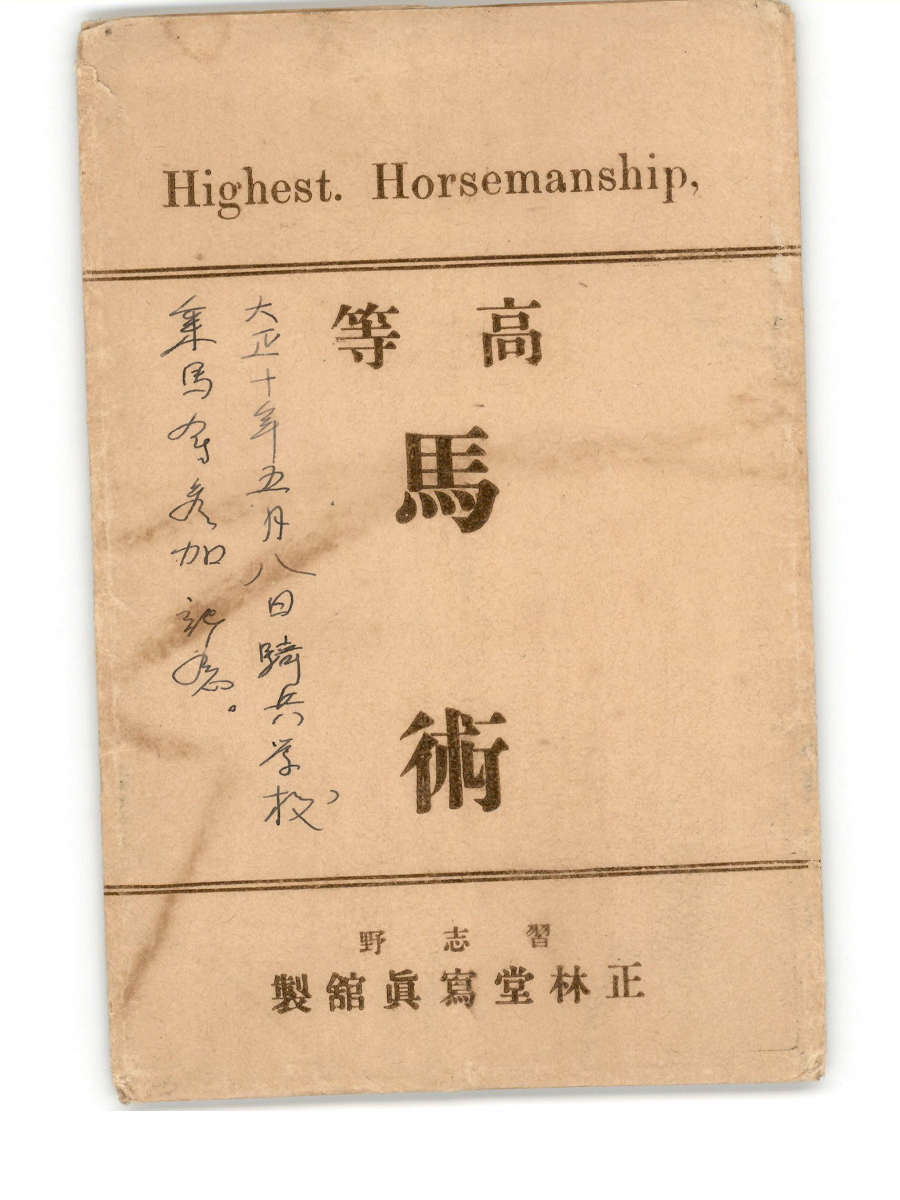 Highest. Horsemanship,
高等
馬術
大正十年五月八日騎兵学校
乗馬会参加記念。
習志野
正林堂寫眞舘製